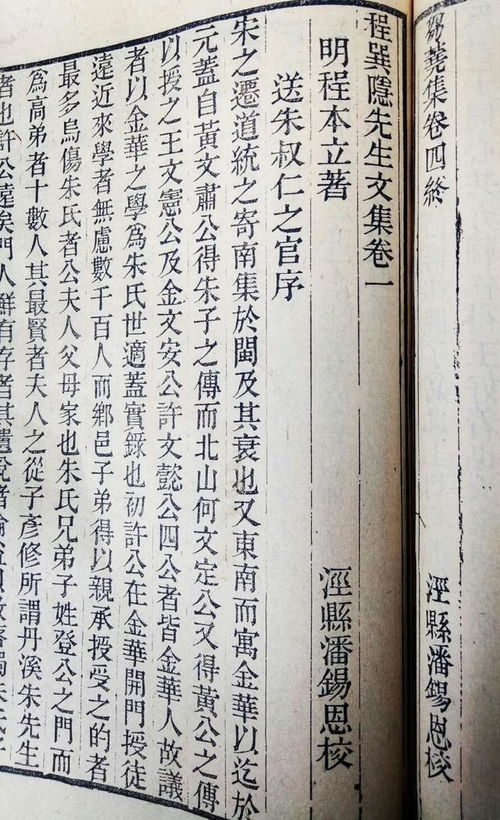 芻蕘集卷四終
涇縣潘錫恩校
程巽隱先生文集卷一
明程本立著
涇縣潘錫恩校
送朱叔仁之官序
宋之遷道統之寄南集於閩及其衰也又東南而寓金華以迄於
元蓋自黃文肅公得朱子之傳而北山何文定公又得黃公之傳
以授之王文憲公及金文安公許文懿公四公者皆金華人故議
者以金華之學爲朱氏世適蓋實錄也初許公在金華開門授徒
遠近來學者無慮數千百人而鄉邑子弟得以親承授受之的者
最多烏傷朱氏者公夫人父母家也朱氏兄弟子姓登公之門而
爲高弟者十數人其最賢者夫人之從子彥修所謂丹溪朱先生
者也許公遠矣門人鮮有存者其遺說